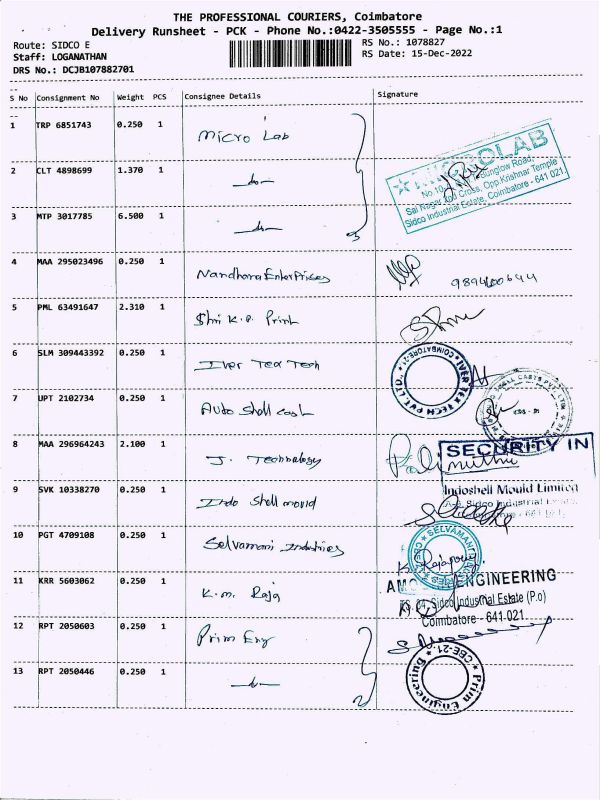 THE PROFESSIONAL COURIERS, Coimbatore
Delivery Runsheet - PCK - Phone No.:0422-3505555 - Page No.:1
Route: SIDCO E
RS No.: 1078827
Staff: LOGANATHAN
RS Date: 15-Dec-2022
DRS No.: DCJB107882701
S No Consignment No Weight PCS Consignee Details Signature
1 TRP 6851743 0.250 1 Micro Lab
MICROLAB
Sai Nagar Cross, Opp.Krishnar Temple
Sidco Industrial Estate, Coimbatore - 641 021
2 CLT 4898699 1.370 1 -do-
3 MTP 3017785 6.500 1 -do-
4 MAA 295023496 0.250 1 Nandhana Enterprises
5 PML 63491647 2.310 1 Shri K.P. Print
6 SLM 309443392 0.250 1 Iver Tea Tech
COIMBATORE-21 IVER TEX TECH PVT. LTD.,
7 UPT 2102734 0.250 1 Auto Shell cast
8 MAA 296964243 2.100 1 J. Technology
SECURITY IN
9 SVK 10338270 0.250 1 Indo Shell mould
Indoshell Mould Limited
10 PGT 4709108 0.250 1 Selvamani Industries
11 KRR 5603062 0.250 1 K.M. Raja
ENGINEERING
Sidco Industrial Estate (P.o)
Coimbatore - 641 021.
12 RPT 2050603 0.250 1 Prim Eng
13 RPT 2050446 0.250 1 -do-
CBE-21 Prim Engineering